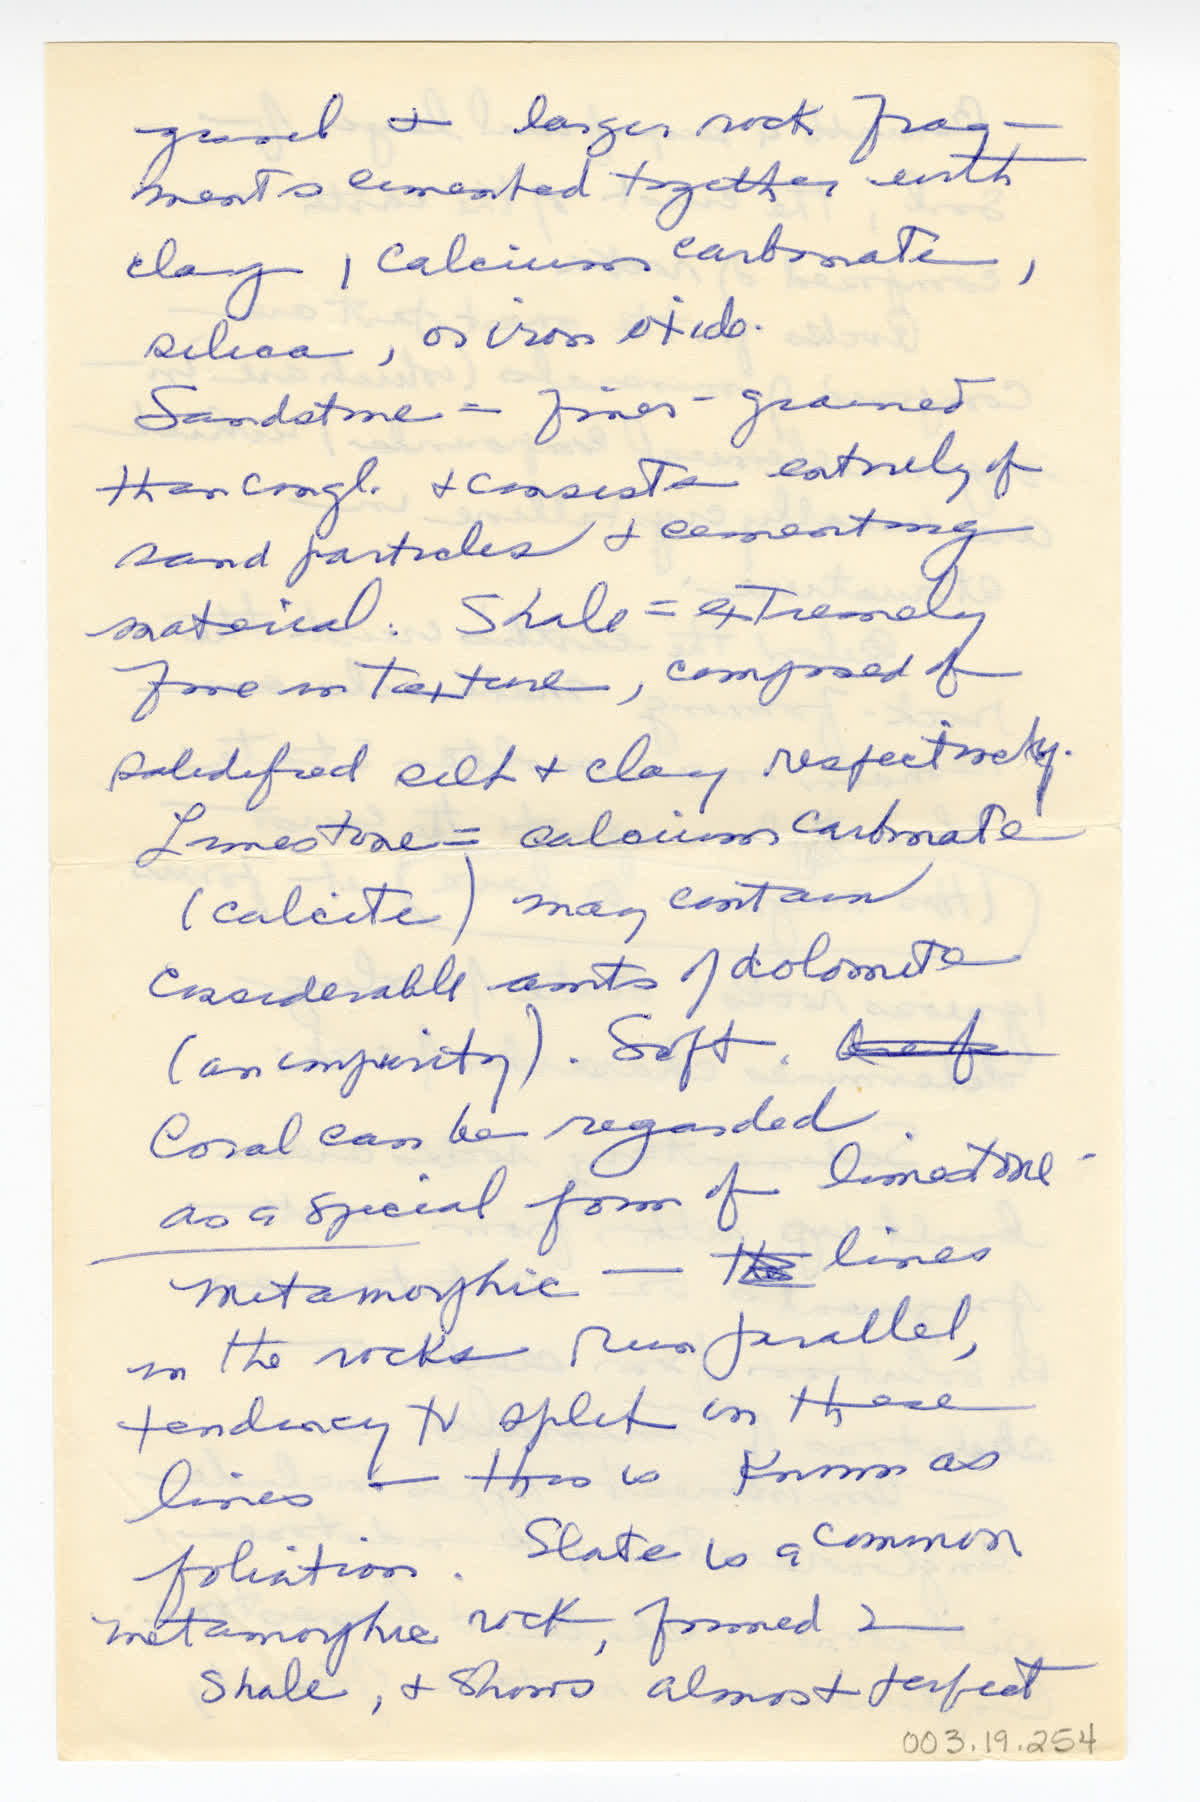 gravel & larger rock frag-
ments cemented together with
clay, calcium carbonate,
silica, or iron oxide.
Sandstone = finer-grained
than congl. & consists entirely of
sand particles & cementing
material. Shale = extremely
fine in texture, composed of
solidified silt & clay respectively.
Limestone = calcium carbonate
(calcite) may contain
considerable amts of dolomite
(an impurity). Soft.
Coral can be regarded
as a special form of limestone -
Metamorphic — lines
in the rocks run parallel,
tendency to split in these
lines — this is known as
foliation. Slate is a common
metamorphic rock, formed
shale, & shows almost perfect
003.19.254